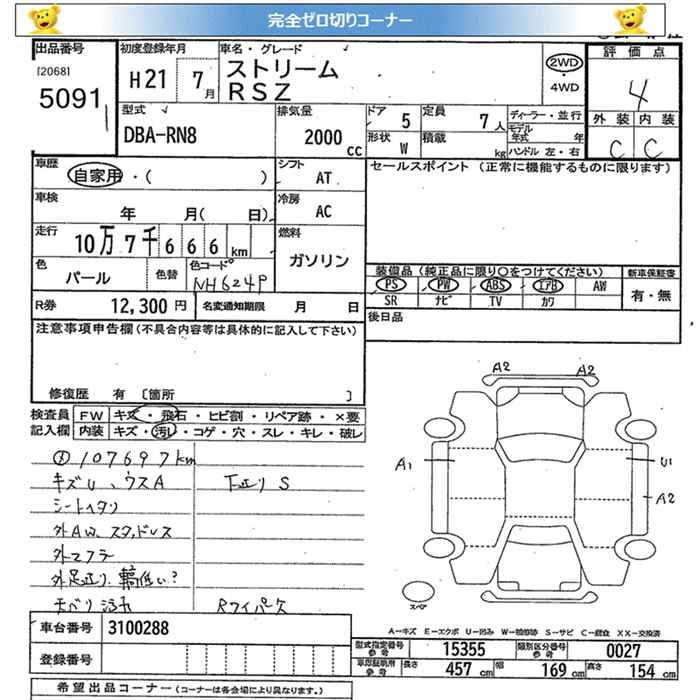 完全ゼロ切りコーナー
出品番号
[2068]
5091
初度登録年月
H21 7月
車名・グレード
ストリーム
RSZ
2WD
・
4WD
評価点
4
外装 内装
C C
型式
DBA-RN8
排気量
2000 cc
ドア 5
形状 W
定員 7人
積載 kg
ディーラー・並行
モデル年式 年
ハンドル 左・右
車歴
自家用・( )
シフト
AT
セールスポイント (正常に機能するものに限ります)
車検
年 月( 日)
冷房
AC
走行
10万7千666km
燃料
ガソリン
色
パール
色替
色コード
NH624P
装備品 (純正品に限り〇をつけてください)
PS PW ABS エアB AW
SR ナビ TV カワ
新車保証書
有・無
R券 12,300円
名変通知期限 月 日
後日品
注意事項申告欄 (不具合内容等は具体的に記入して下さい)
修復歴 有 〔箇所 〕
検査員
記入欄
FW キズ・飛石・ヒビ割・リペア跡・×要
内装 キズ・汚レ・コゲ・穴・スレ・キレ・破レ
107697km
キズU、ウスA
下廻りS
シートヘタリ
外AW、スタッドレス
外マフラ
外足廻り、車高低い?
Rワイパー欠
A2 A2
A1
U1
A2
スペア
A-キズ E-エクボ U-凹み W-補修跡 S-サビ C-腐食 XX-交換済
車台番号 3100288
登録番号
型式指定番号 参考 15355
類別区分番号 参考 0027
車庫証明用 参考 長さ 457cm 幅 169cm 高さ 154cm
希望出品コーナー (コーナーは各会場により異なります。)